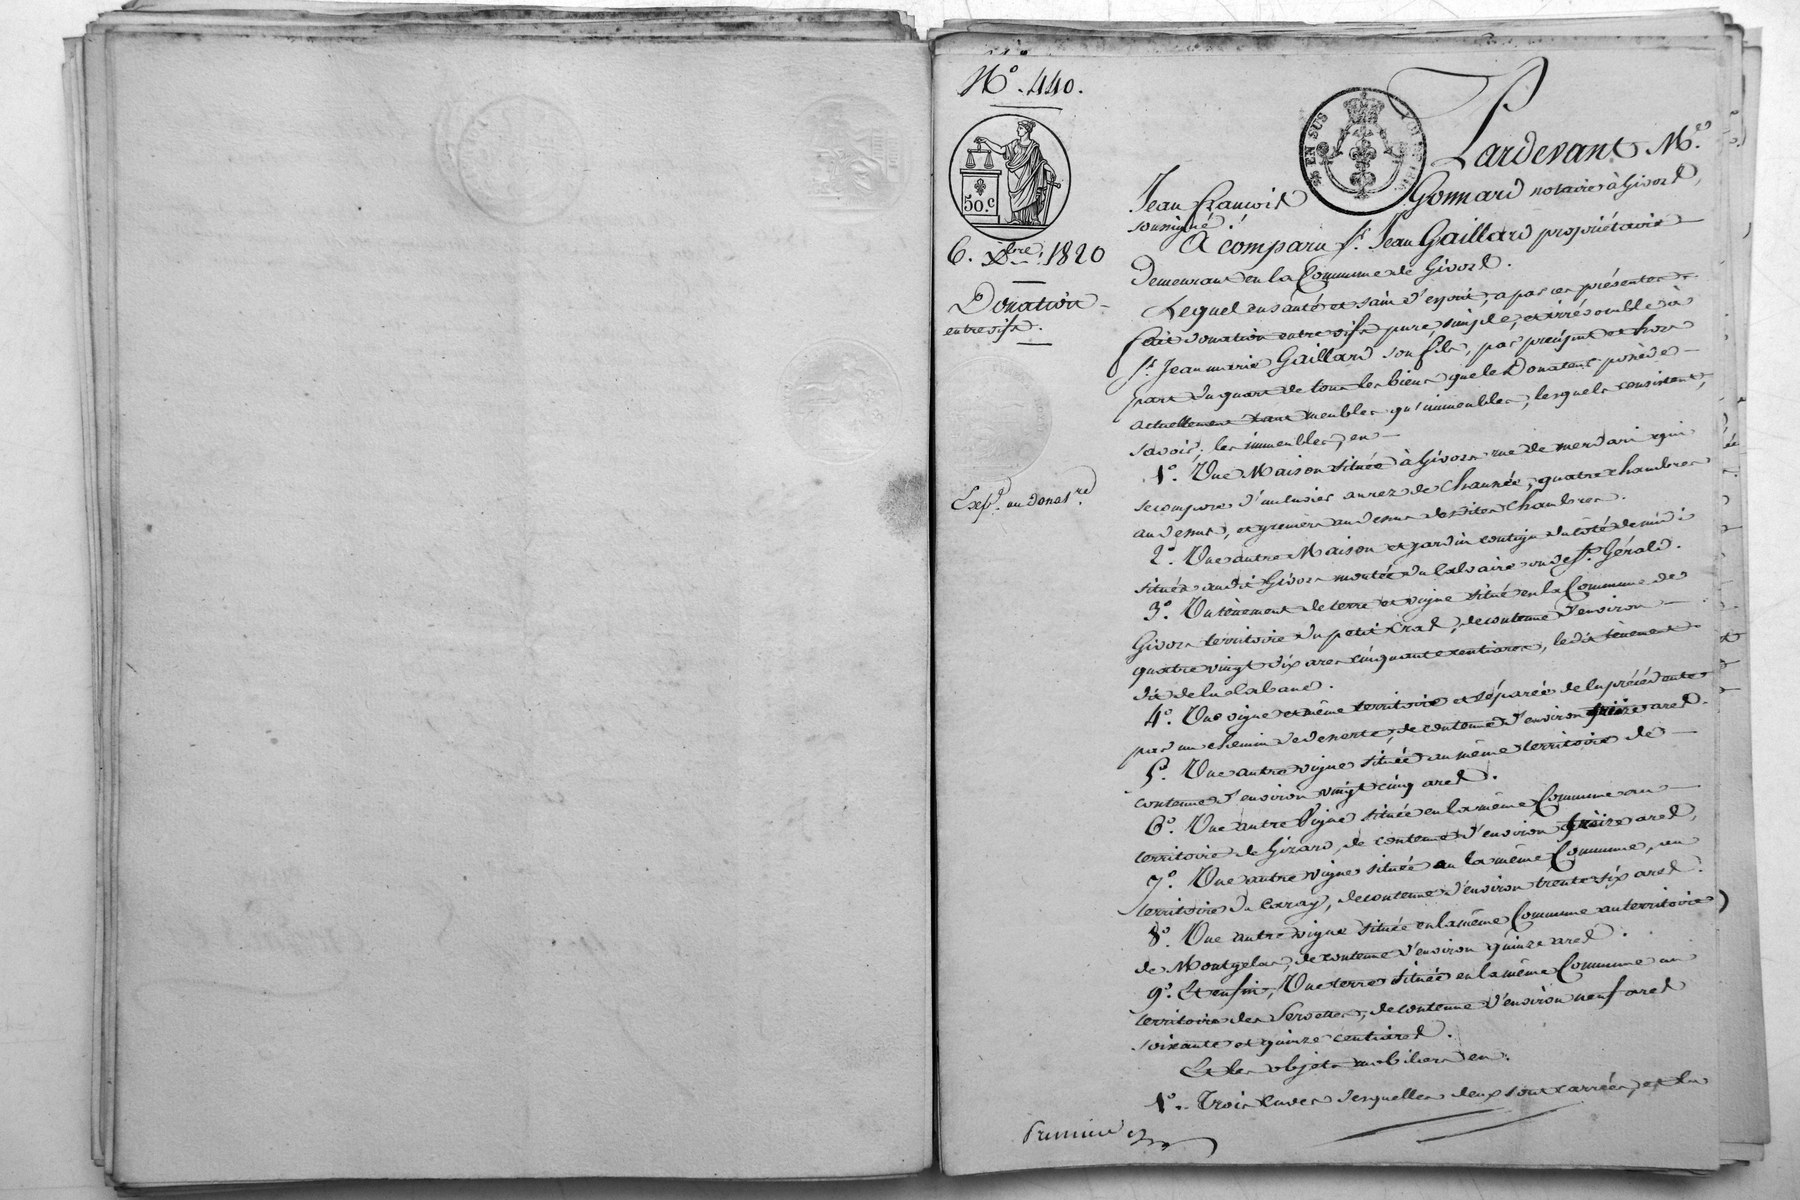 N.º 440.
50.c
6. Xbre. 1820
Donation
entre vifs.
Exp.on au donat.re
EN SUS
Pardevant M.e
Jean François Gonnard notaire à Givors,
soussigné
A comparu S.r Jean Gaillard propriétaire
demeurant en la Commune de Givors.
Lequel en santé et sain d'esprit, a par ces présentes
fait donation entre vifs pure, simple, et irrévocable à
S.r Jean marie Gaillard son fils, par préciput et hors
part du quart de tous les biens que le Donateur possède
actuellement tant meubles qu'immeubles, lesquels consistent,
savoir; les immeubles, en
1.º Une Maison située à Givors rue de merdari qui
se compose d'un cuvier au rez de chaussée, quatre chambres
au dessus, et greniers au dessus desdites chambres.
2.º Une autre Maison et jardin contigu du côté de midi
situés audit Givors montée du Calvaire ou de S.t Gérald.
3.º Un tènement de terre et vigne situé en la Commune de
Givors territoire du petit Cras, de contenue d'environ
quatre vingt dix ares cinquante centiares, ledit tènement
dit de la Cabane.
4.º Une vigne et même territoire et séparée de la précédente
par un chemin de desserte, de contenue d'environ treize ares.
5.º Une autre vigne située au même territoire de
contenue d'environ vingt cinq ares.
6.º Une autre Vigne située en la même Commune au
territoire de Gizard, de contenue d'environ treize ares,
7.º Une autre vigne située en la même Commune, au
territoire du Caray, de contenue d'environ trente six ares.
8.º Une autre vigne située en la même Commune au territoire
de Montgelas, de contenue d'environ quinze ares.
9.º Et enfin, Une terre située en la même Commune au
territoire des Servettes, de contenue d'environ neuf ares
soixante et quinze centiares.
Et les objets mobiliers en.
1.º Trois cuves desquelles deux sont carrées, et la
Première